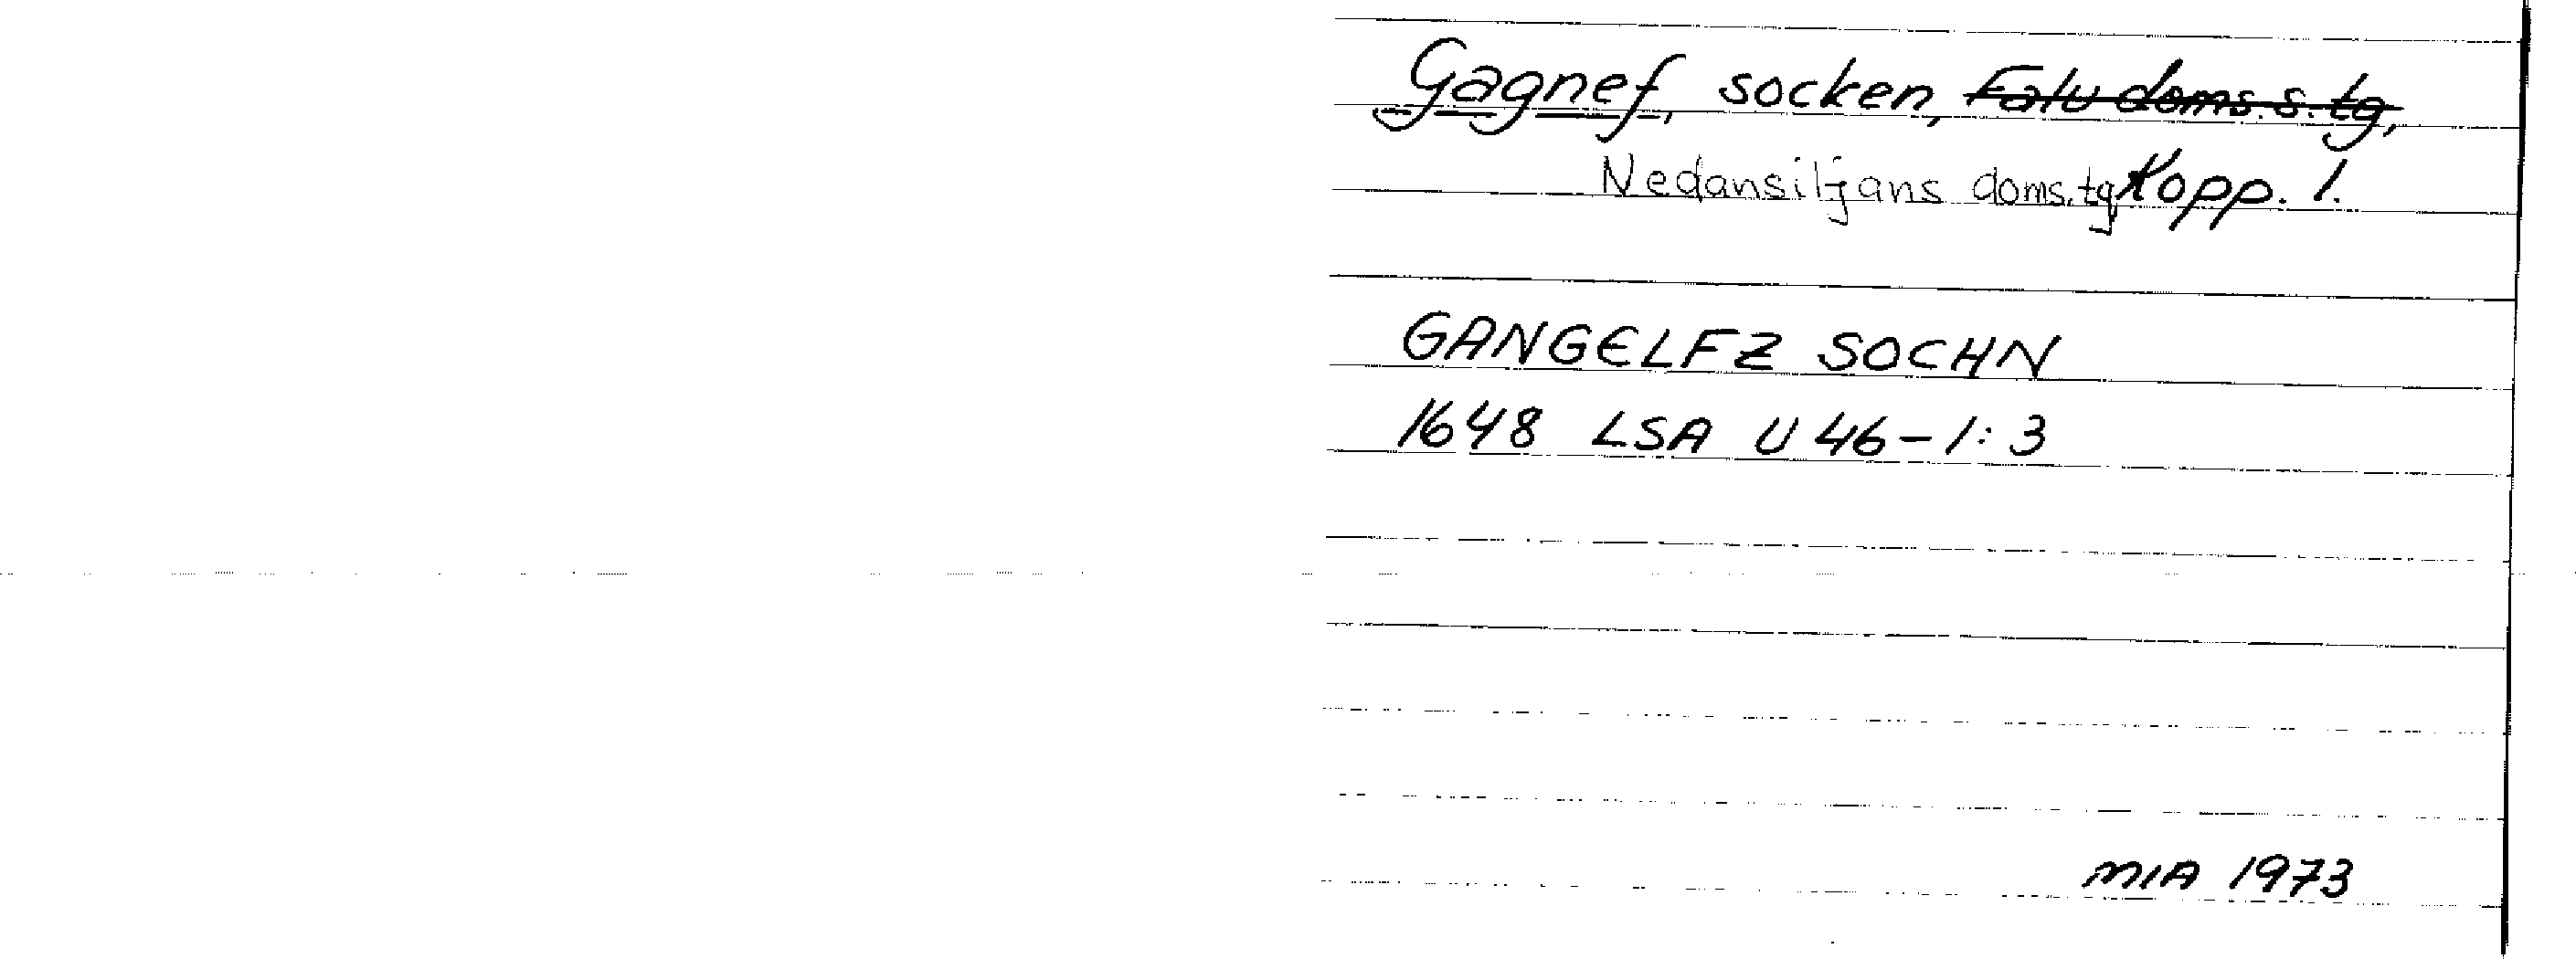 Gagnef, socken, Falu doms.s.tg,
Nedansiljans doms.tg Kopp. l.
GANGELFZ SOCHN
1648 LSA U 46-1:3
MIA 1973